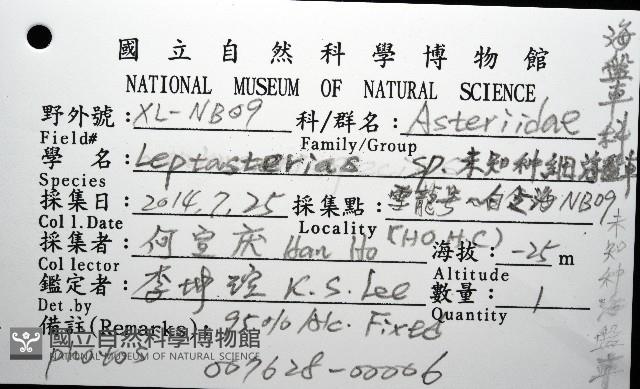 國立自然科學博物館
NATIONAL MUSEUM OF NATURAL SCIENCE
野外號:XL-NB09 科/群名:Asteriidae
Field# Family/Group
學 名:Leptasterias sp. 未知种網海盤車
Species
採集日:2014.7.25 採集點:雪龍号~白令海NB09
Coll.Date Locality
採集者:何宣庆 Han Ho (HO,H.C) 海拔:-25m
Collector Altitude
鑑定者:李坤瑄 K.S.Lee 數量:1
Det.by Quantity
備註(Remarks):95% Alc. Fixed
國立自然科學博物館
NATIONAL MUSEUM OF NATURAL SCIENCE
007628-00006
海盤車科
未知种海盤車